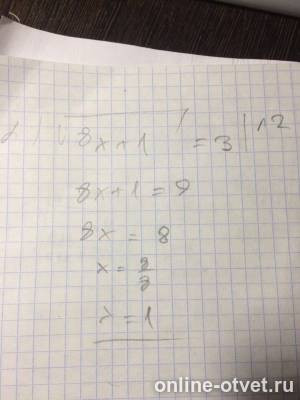 √8x+1 = 3 | ^2
8x+1 = 9
8x = 8
x = 8/8
x = 1
online-otvet.ru